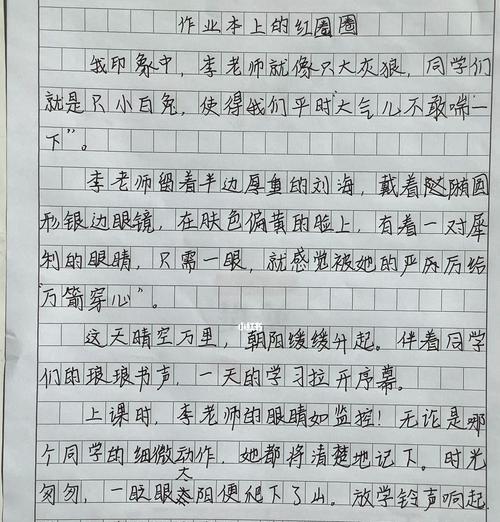 作业本上的红圈圈
我印象中，李老师就像只大灰狼，同学们
就是只小白兔，使得我们平时"大气儿不敢喘一
下"。
李老师留着半边厚重的刘海，戴着椭圆
形银边眼镜，在肤色偏黄的脸上，有着一对犀
利的眼睛，只需一眼，就感觉被她的严厉后给
"万箭穿心"。
这天晴空万里，朝阳缓缓升起。伴着同学
们的琅琅书声，一天的学习拉开序幕。
小红书
上课时，李老师的眼睛如监控！无论是哪
个同学的细微动作，她都将清楚地记下。时光
匆匆，一眨眼太阳便爬下了山。放学铃声响起